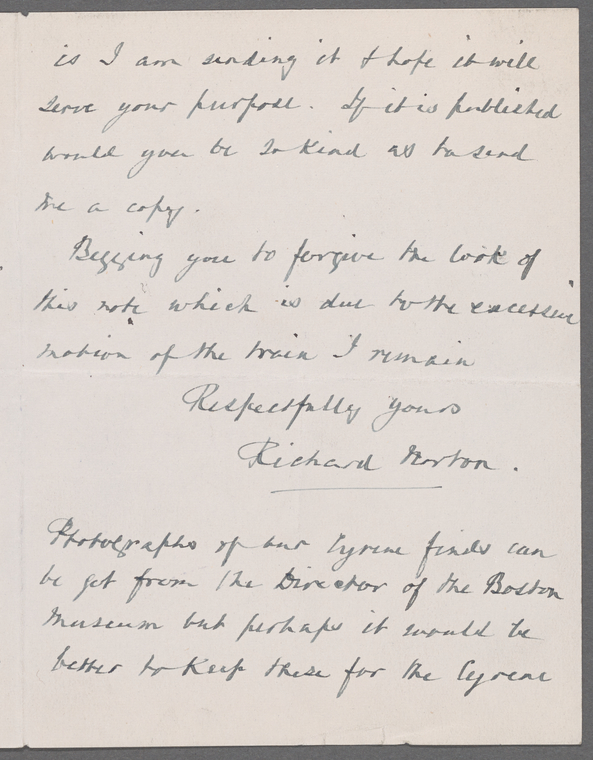 is I am sending it & hope it will
serve your purpose. If it is published
would you be so kind as to send
me a copy.
Begging you to forgive the look of
this note which is due to the excessive
motion of the train I remain
Respectfully yours
Richard Norton.
Photographs of our Cyrene finds can
be got from the Director of the Boston
Museum but perhaps it would be
better to keep these for the Cyrene